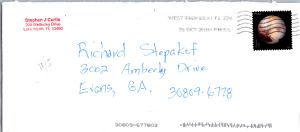 Stephen J Curtis
WEST PALM BCH FL 334
Richard Stepakof
3002 Amberly Drive
Evans, GA,
30809-6778
30809-677802